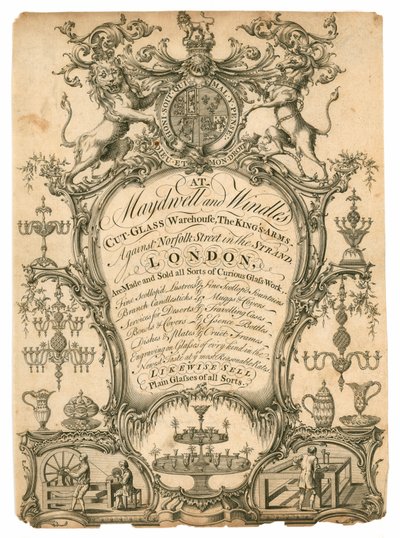 HONI SOIT QUI MAL Y PENSE
DIEU ET MON DROIT
AT
Maydwell and Windle's
CUT-GLASS Warehouſe, The KING'S ARMS,
Against Norfolk Street in the STRAND,
LONDON,
Are Made and Sold all Sorts of Curious Glaſs Work,
Fine Scollop'd Lustres Fine Scollop'd Fountains
Branch Candlesticks Muggs & Covers
Services for Desarts Travelling Cases
Bowls & Covers Eſsence Bottles
Dishes & Plates Cruet Frames
Engraving on Glaſses of every kind in the
Newest Taste at y.e most Reasonable Rates
LIKEWISE SELL
Plain Glaſses of all Sorts.